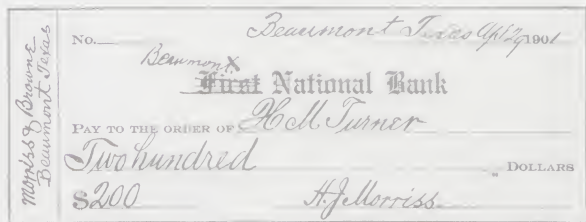 Morriss & Browne
Beaumont Texas
No. Beaumont Texas Apl 29 1901
Beaumont X
First National Bank
PAY TO THE ORDER OF H M Turner
Two hundred DOLLARS
$200 H.J. Morriss